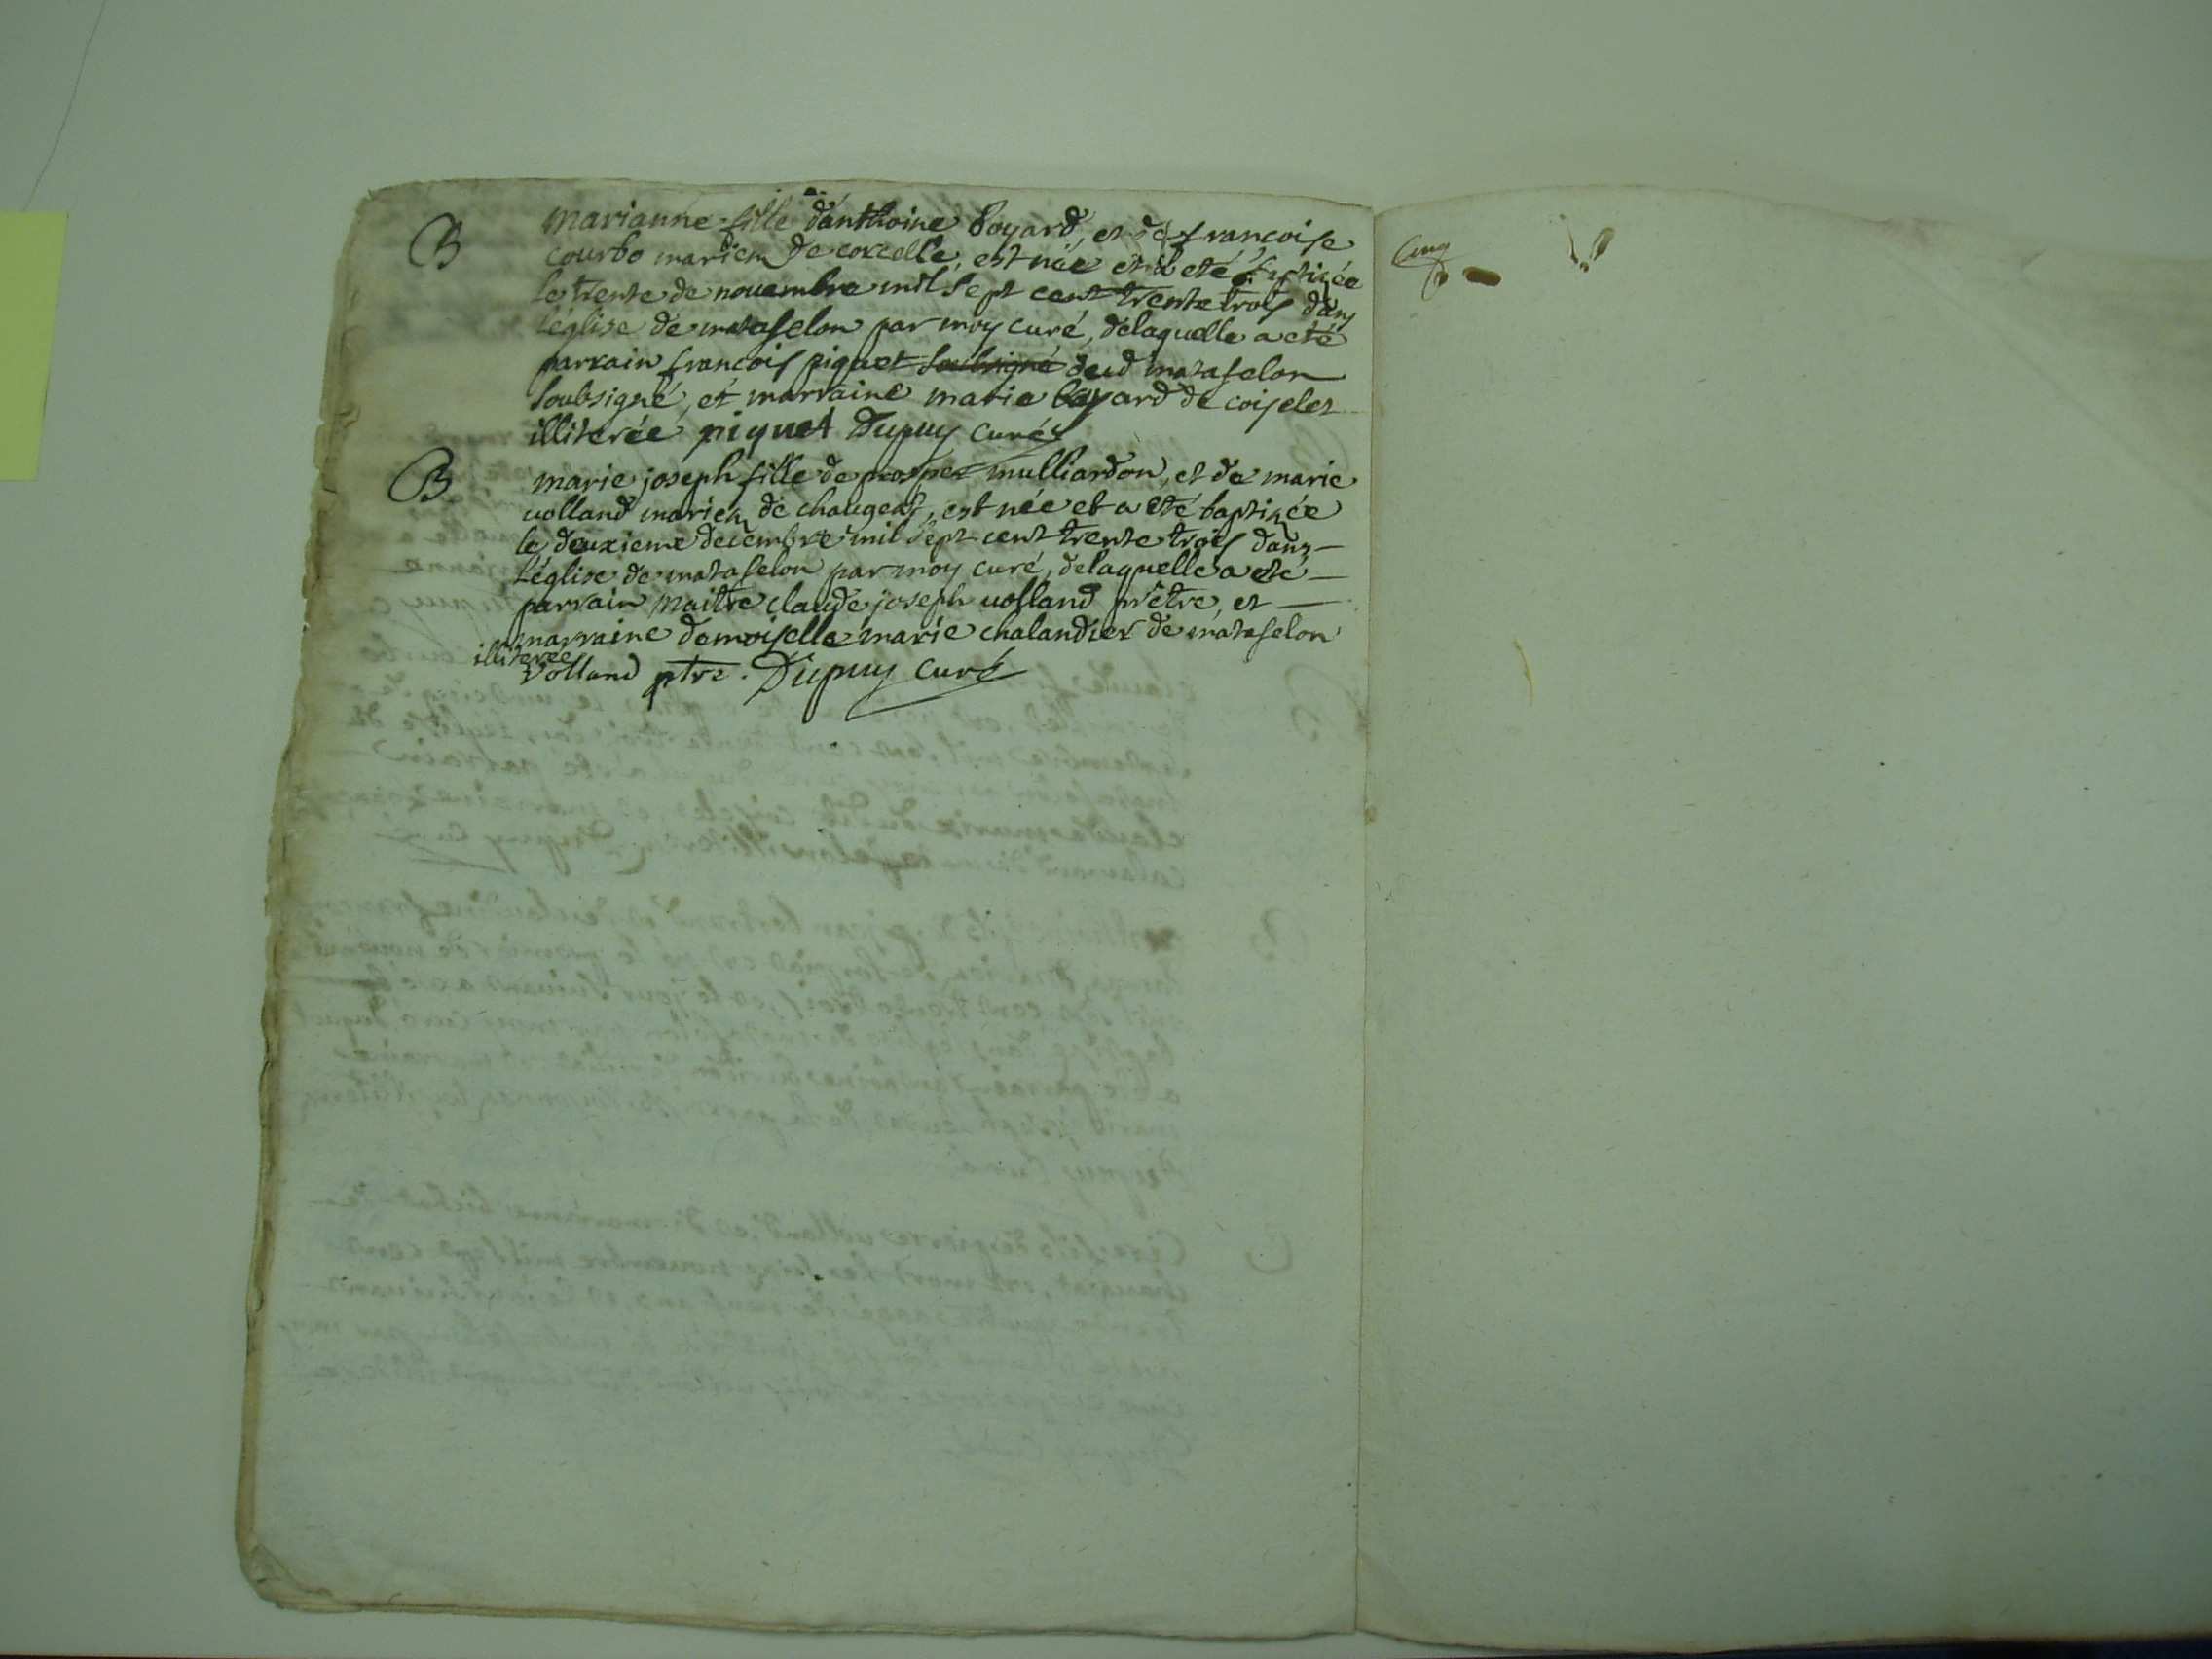 B
marianne fille d'anthoine boyard, et de francoise
courbo mariem de corcelle, est née et a eté baptizée
le trente de nouembre mil sept cent trente trois dans
l'église de mataselon par moy curé, delaquelle a eté
parrain francois piquet soubsigné dud mataselon
soubsigné, et marraine marie bayard de coiselet
illiterée piquet Dupuy curé
B
marie joseph fille de prosper mulliardon, et de marie
uolland mariem de chaugeat, est née et a eté baptizée
le deuxieme decembre mil sept cent trente trois dans
l'église de mataselon par moy curé, delaquelle a eté
parrain maitre claude joseph uolland prêtre, et
marraine demoiselle marie chalandier de mataselon
illiterée
Volland ptre. Dupuy curé